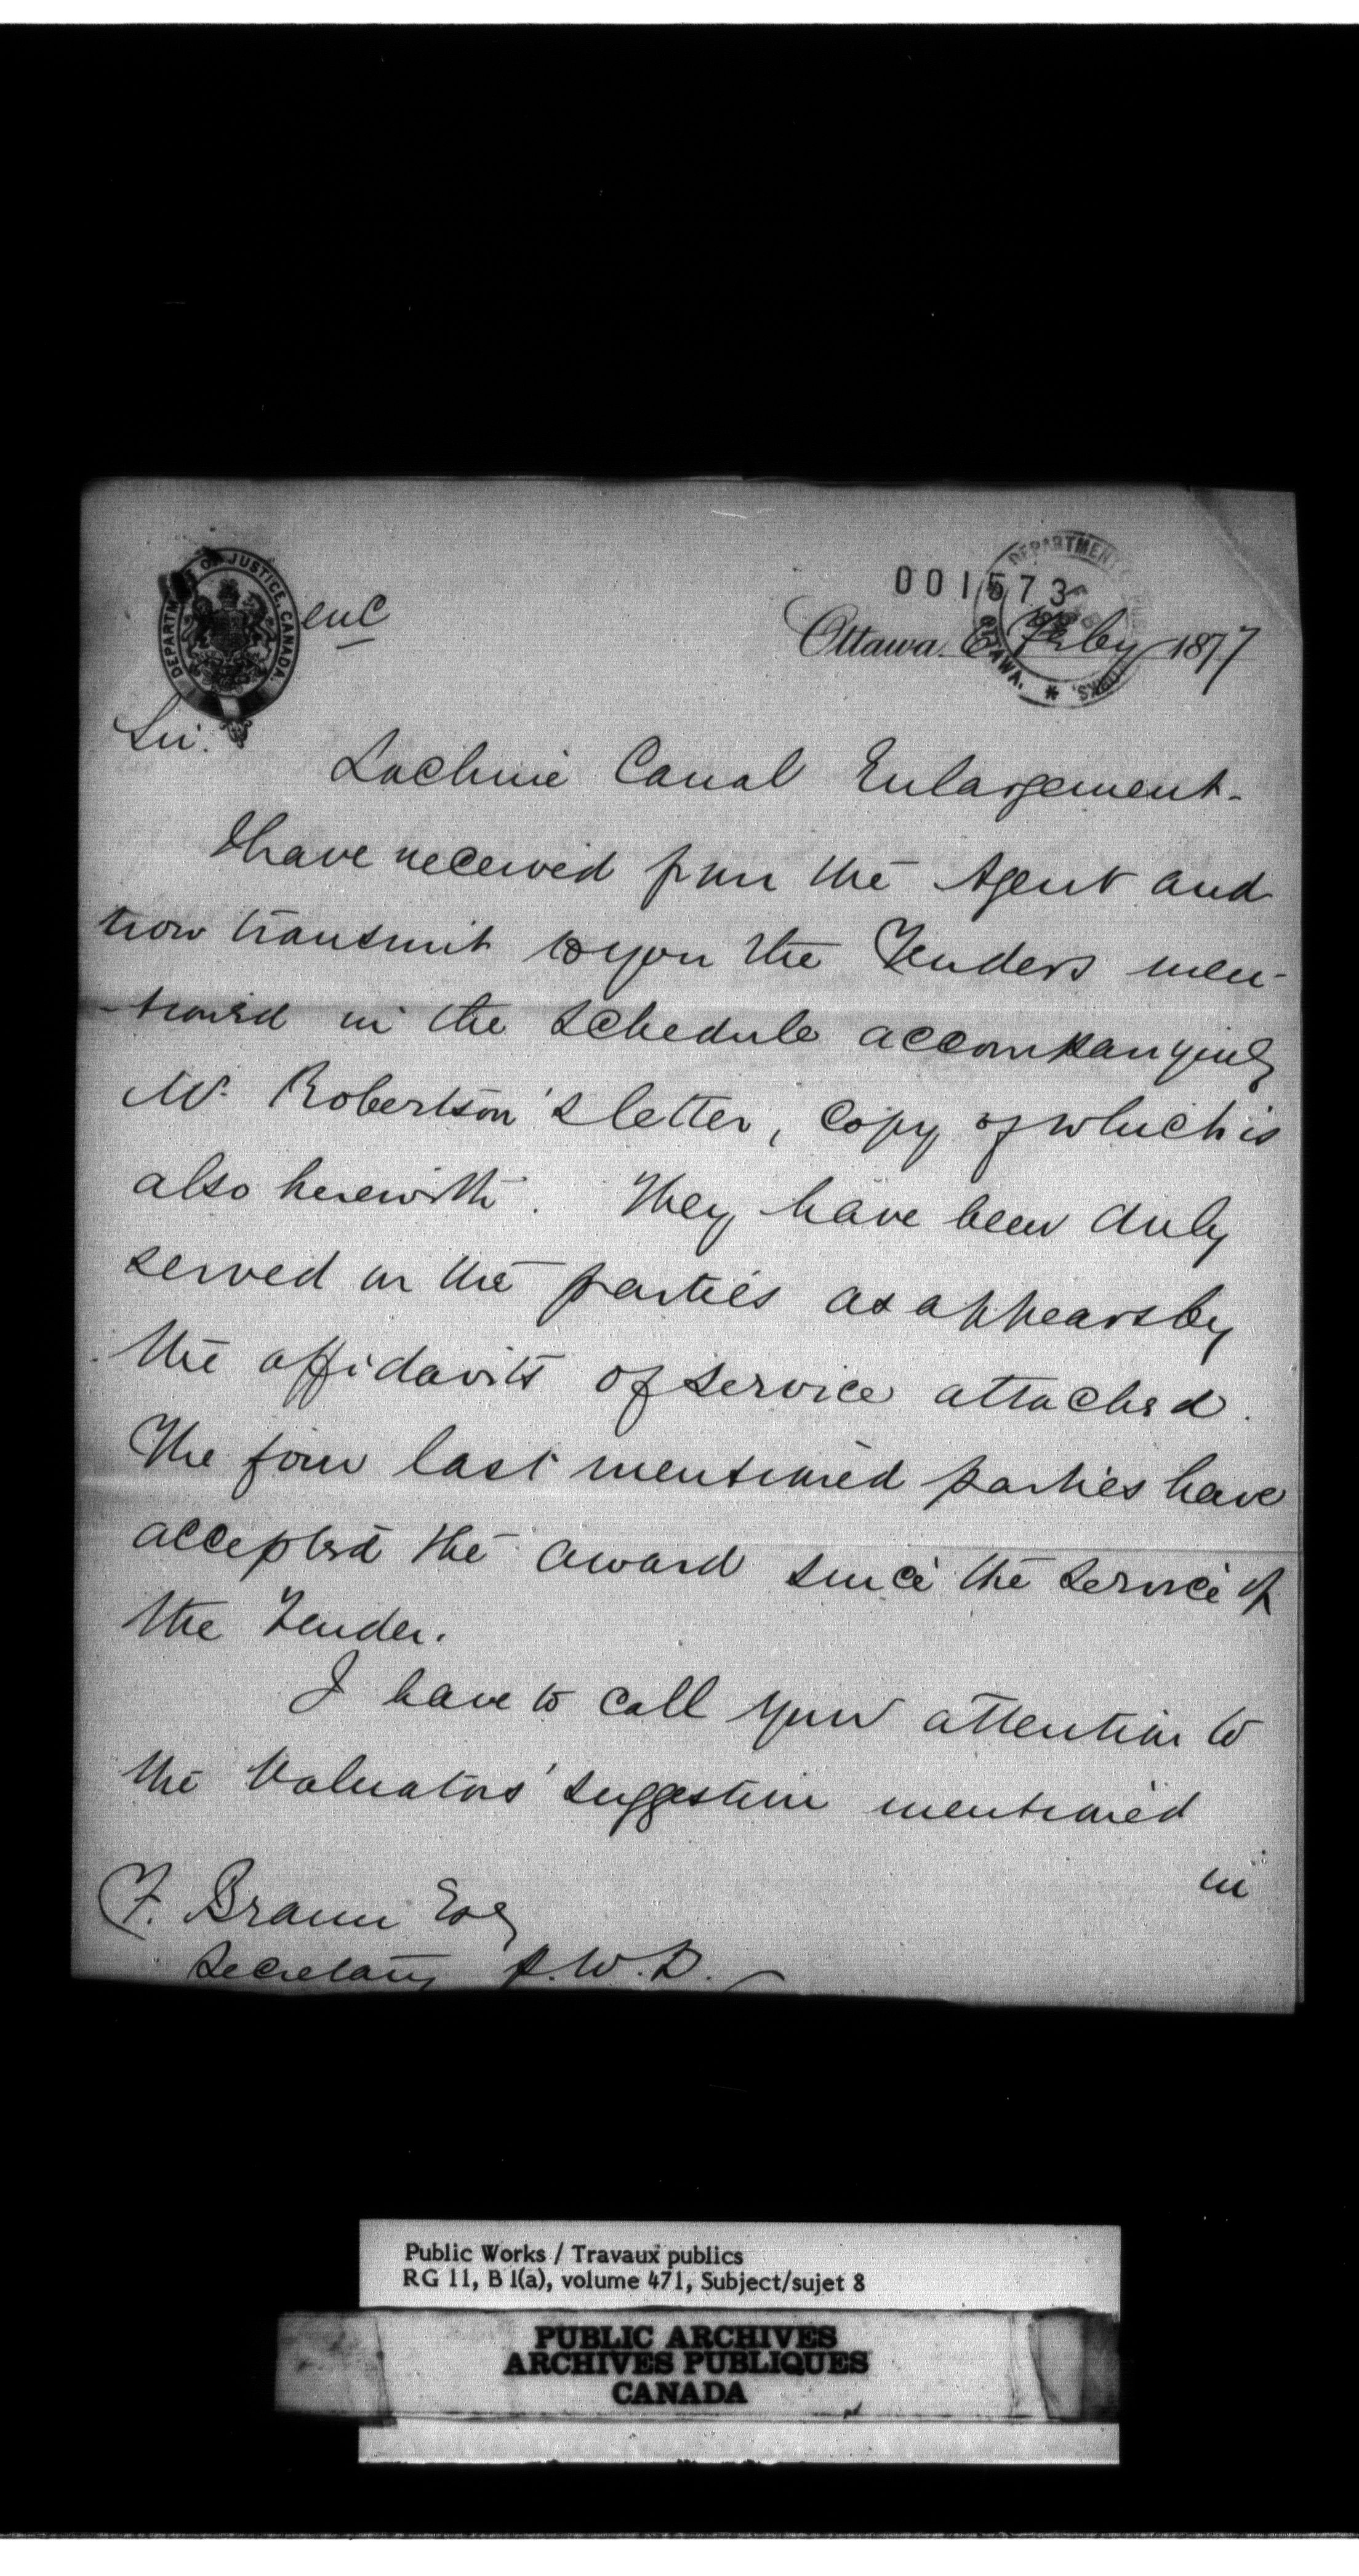 DEPARTMENT OF JUSTICE, CANADA.
enc
001573
DEPARTMENT OTTAWA. WORKS. *
Ottawa. 6 Feby 1877
Sir.
Lachine Canal Enlargement.
I have received from the Agent and
now transmit to you the Tenders men-
-tioned in the schedule accompanying
Mr. Robertson's letter, copy of which is
also herewith. They have been duly
served on the parties as appears by
the affidavits of service attached.
The four last mentioned parties have
accepted the award since the service of
the Tender.
I have to call your attention to
the Valuators' suggestion mentioned
in
F. Braun Esq
Secretary P.W.D.
Public Works / Travaux publics
RG 11, B 1(a), volume 471, Subject/sujet 8
PUBLIC ARCHIVES
ARCHIVES PUBLIQUES
CANADA